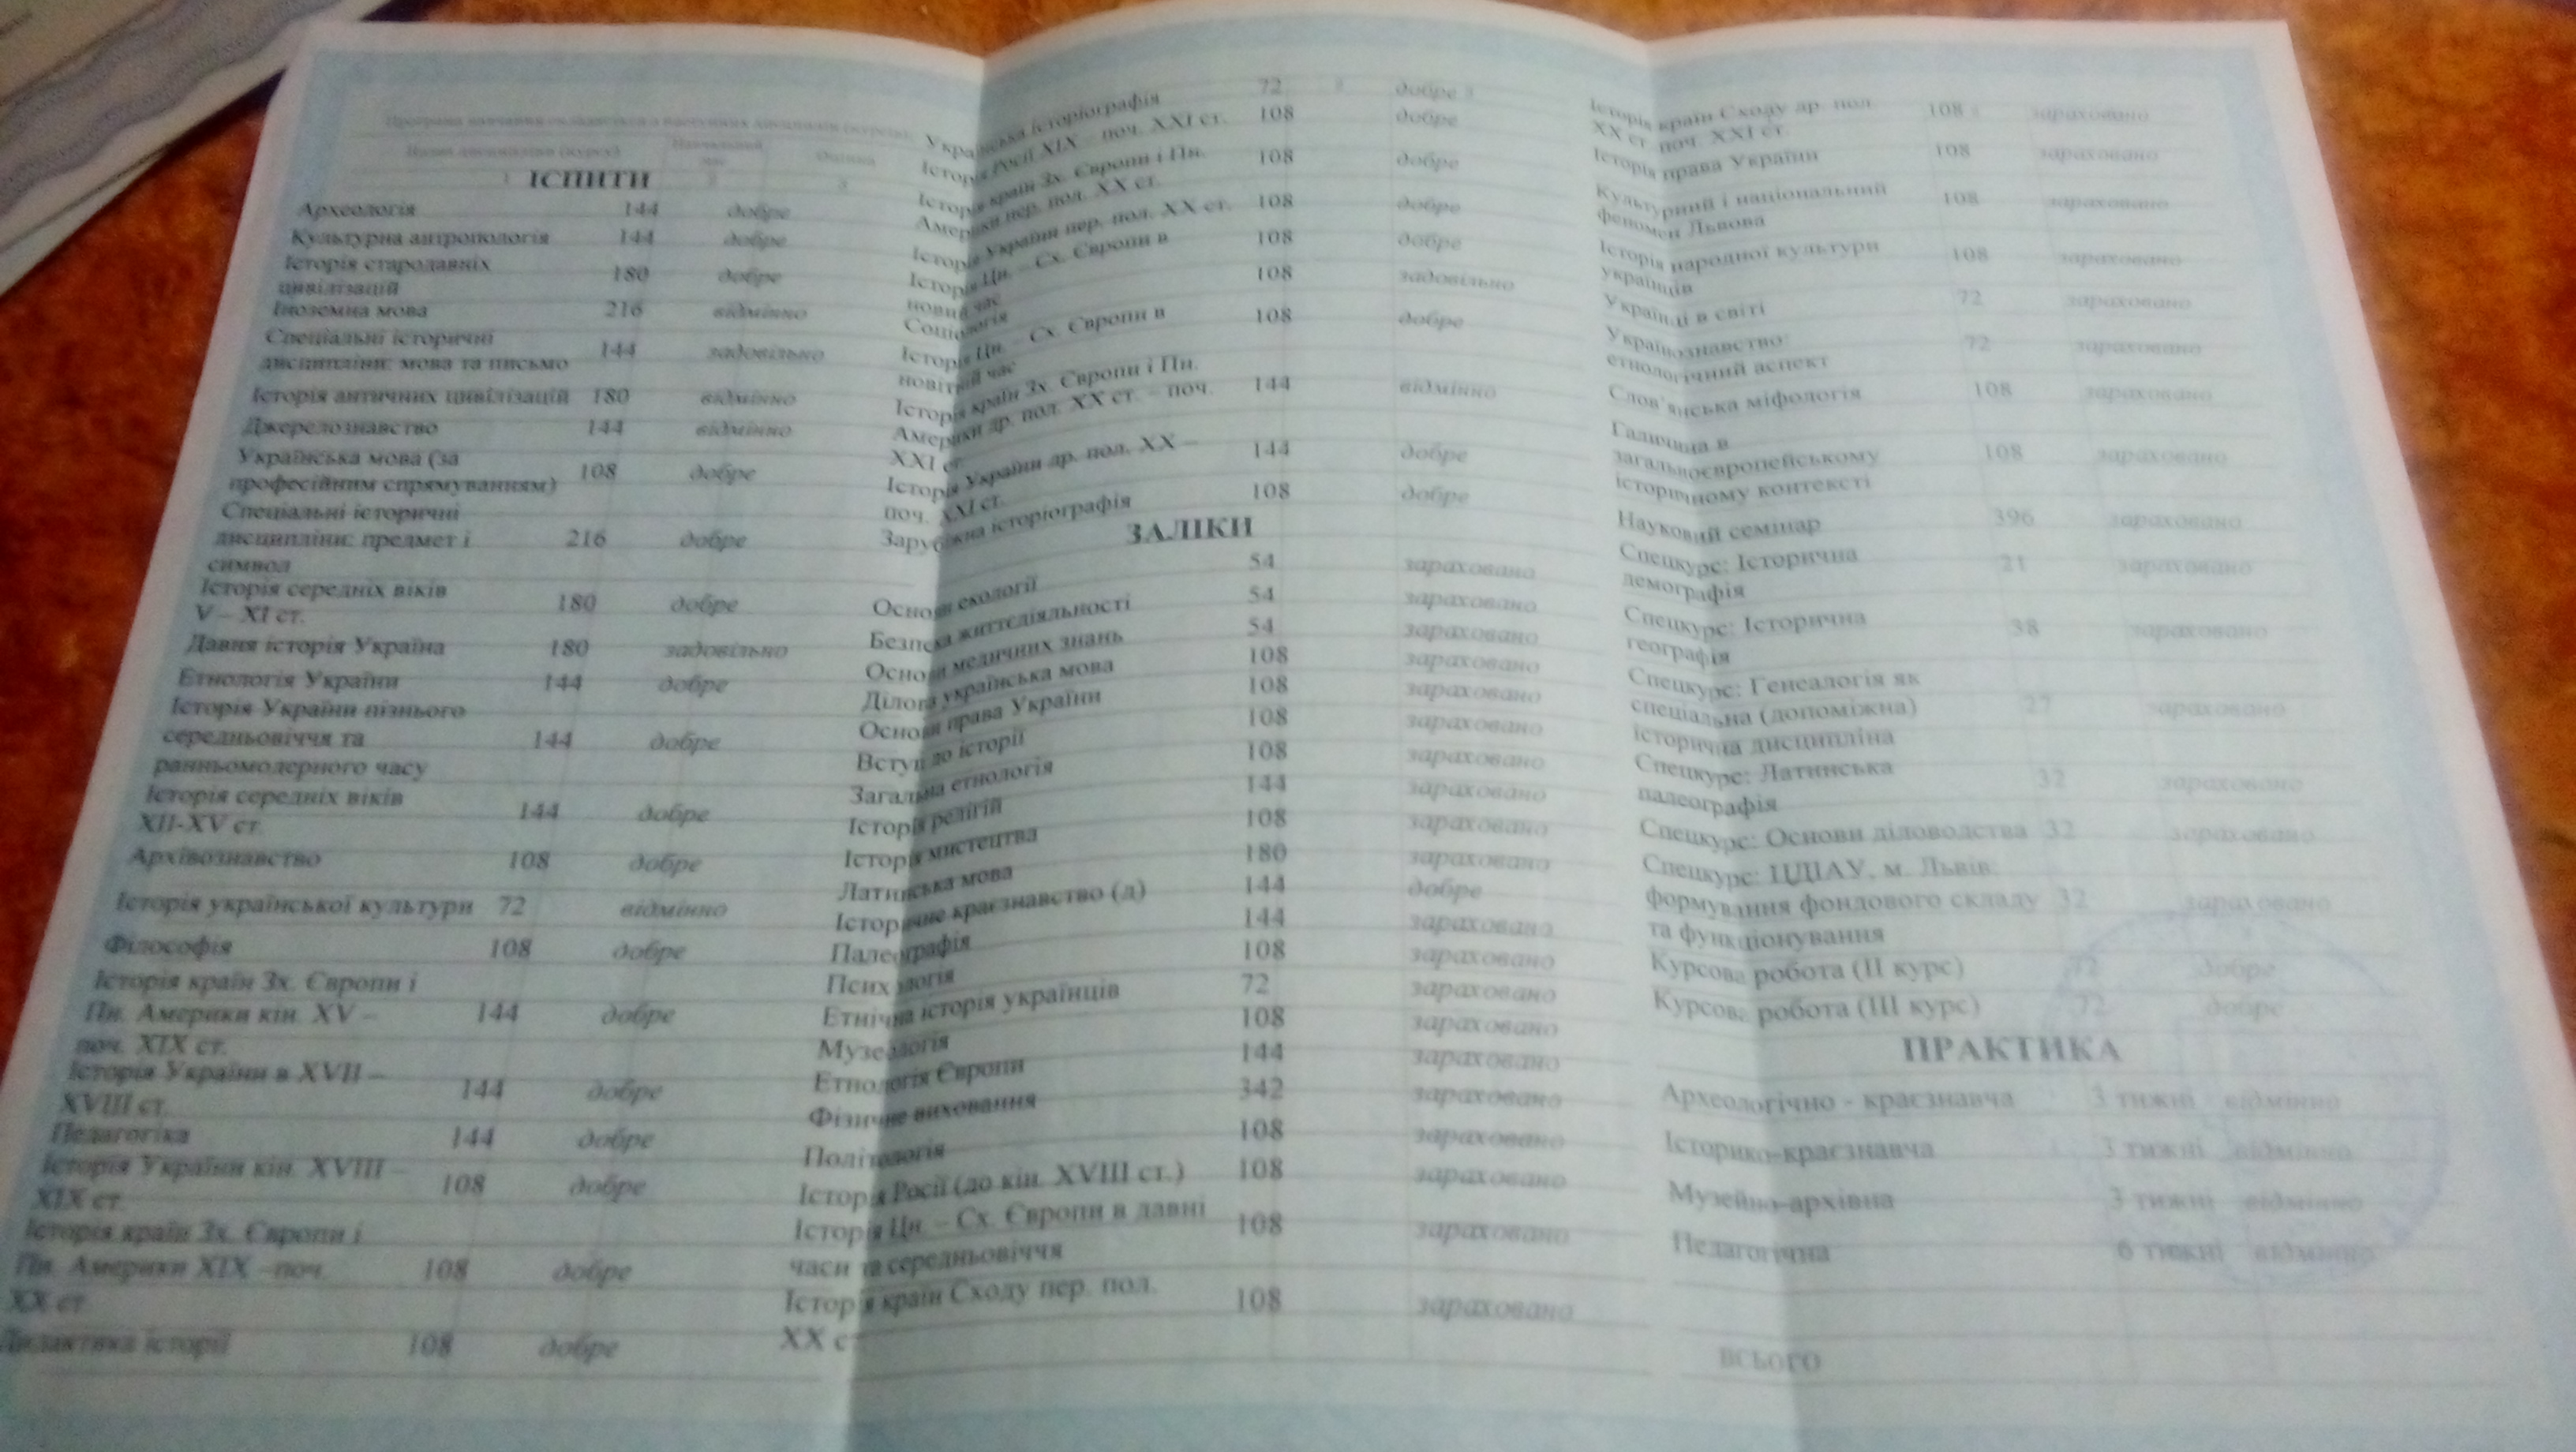 Програма навчання складається з наступних дисциплін (курсів):
Назва дисципліни (курсу) Навчальний час Оцінка
1 2 3
ІСПИТИ
Археологія 144 добре
Культурна антропологія 144 добре
Історія стародавніх
цивілізацій 180 добре
Іноземна мова 216 відмінно
Спеціальні історичні
дисципліни: мова та письмо 144 задовільно
Історія античних цивілізацій 180 відмінно
Джерелознавство 144 відмінно
Українська мова (за
професійним спрямуванням) 108 добре
Спеціальні історичні
дисципліни: предмет і 216 добре
символ
Історія середніх віків
V – XI ст. 180 добре
Давня історія Україна 180 задовільно
Етнологія України 144 добре
Історія України пізнього
середньовіччя та 144 добре
ранньомодерного часу
Історія середніх віків
XII-XV ст. 144 добре
Архівознавство 108 добре
Історія української культури 72 відмінно
Філософія 108 добре
Історія країн Зх. Європи і
Пн. Америки кін. XV – 144 добре
поч. XIX ст.
Історія України в XVII –
XVIII ст. 144 добре
Педагогіка 144 добре
Історія України кін. XVIII –
XIX ст. 108 добре
Історія країн Зх. Європи і
Пн. Америки XIX –поч. 108 добре
XX ст.
Дидактика історії 108 добре
Українська історіографія 72 добре
Історія Росії XIX – поч. XXI ст. 108 добре
Історія країн Зх. Європи і Пн.
Америки пер. пол. XX ст. 108 добре
Історія України пер. пол. XX ст. 108 добре
Історія Цн. – Сх. Європи в
новий час 108 добре
Соціологія 108 задовільно
Історія Цн. – Сх. Європи в
новітній час 108 добре
Історія країн Зх. Європи і Пн.
Америки др. пол. XX ст. – поч. 144 відмінно
XXI ст.
Історія України др. пол. XX –
поч. XXI ст. 144 добре
Зарубіжна історіографія 108 добре
ЗАЛІКИ
Основи екології 54 зараховано
Безпека життєдіяльності 54 зараховано
Основи медичних знань 54 зараховано
Ділова українська мова 108 зараховано
Основи права України 108 зараховано
Вступ до історії 108 зараховано
Загальна етнологія 108 зараховано
Історія релігій 144 зараховано
Історія мистецтва 108 зараховано
Латинська мова 180 зараховано
Історичне краєзнавство (д) 144 добре
Палеографія 144 зараховано
Психологія 108 зараховано
Етнічна історія українців 72 зараховано
Музеологія 108 зараховано
Етнологія Європи 144 зараховано
Фізичне виховання 342 зараховано
Політологія 108 зараховано
Історія Росії (до кін. XVIII ст.) 108 зараховано
Історія Цн. – Сх. Європи в давні
часи та середньовіччя 108 зараховано
Історія країн Сходу пер. пол.
XX ст. 108 зараховано
Історія країн Сходу др. пол.
XX ст. поч. XXI ст. 108 зараховано
Історія права України 108 зараховано
Культурний і національний
феномен Львова 108 зараховано
Історія народної культури
українців 108 зараховано
Українці в світі 72 зараховано
Українознавство:
етнологічний аспект 72 зараховано
Слов'янська міфологія 108 зараховано
Галичина в
загальноєвропейському 108 зараховано
історичному контексті
Науковий семінар 396 зараховано
Спецкурс: Історична
демографія 21 зараховано
Спецкурс: Історична
географія 38 зараховано
Спецкурс: Генеалогія як
спеціальна (допоміжна) 27 зараховано
історична дисципліна
Спецкурс: Латинська
палеографія 32 зараховано
Спецкурс: Основи діловодства 32 зараховано
Спецкурс: ЦДІАУ, м. Львів:
формування фондового складу 32 зараховано
та функціонування
Курсова робота (II курс) 72 добре
Курсова робота (III курс) 72 добре
ПРАКТИКА
Археологічно - краєзнавча 3 тижні відмінно
Історико-краєзнавча 3 тижні відмінно
Музейно-архівна 3 тижні відмінно
Педагогічна 6 тижні відмінно
ВСЬОГО